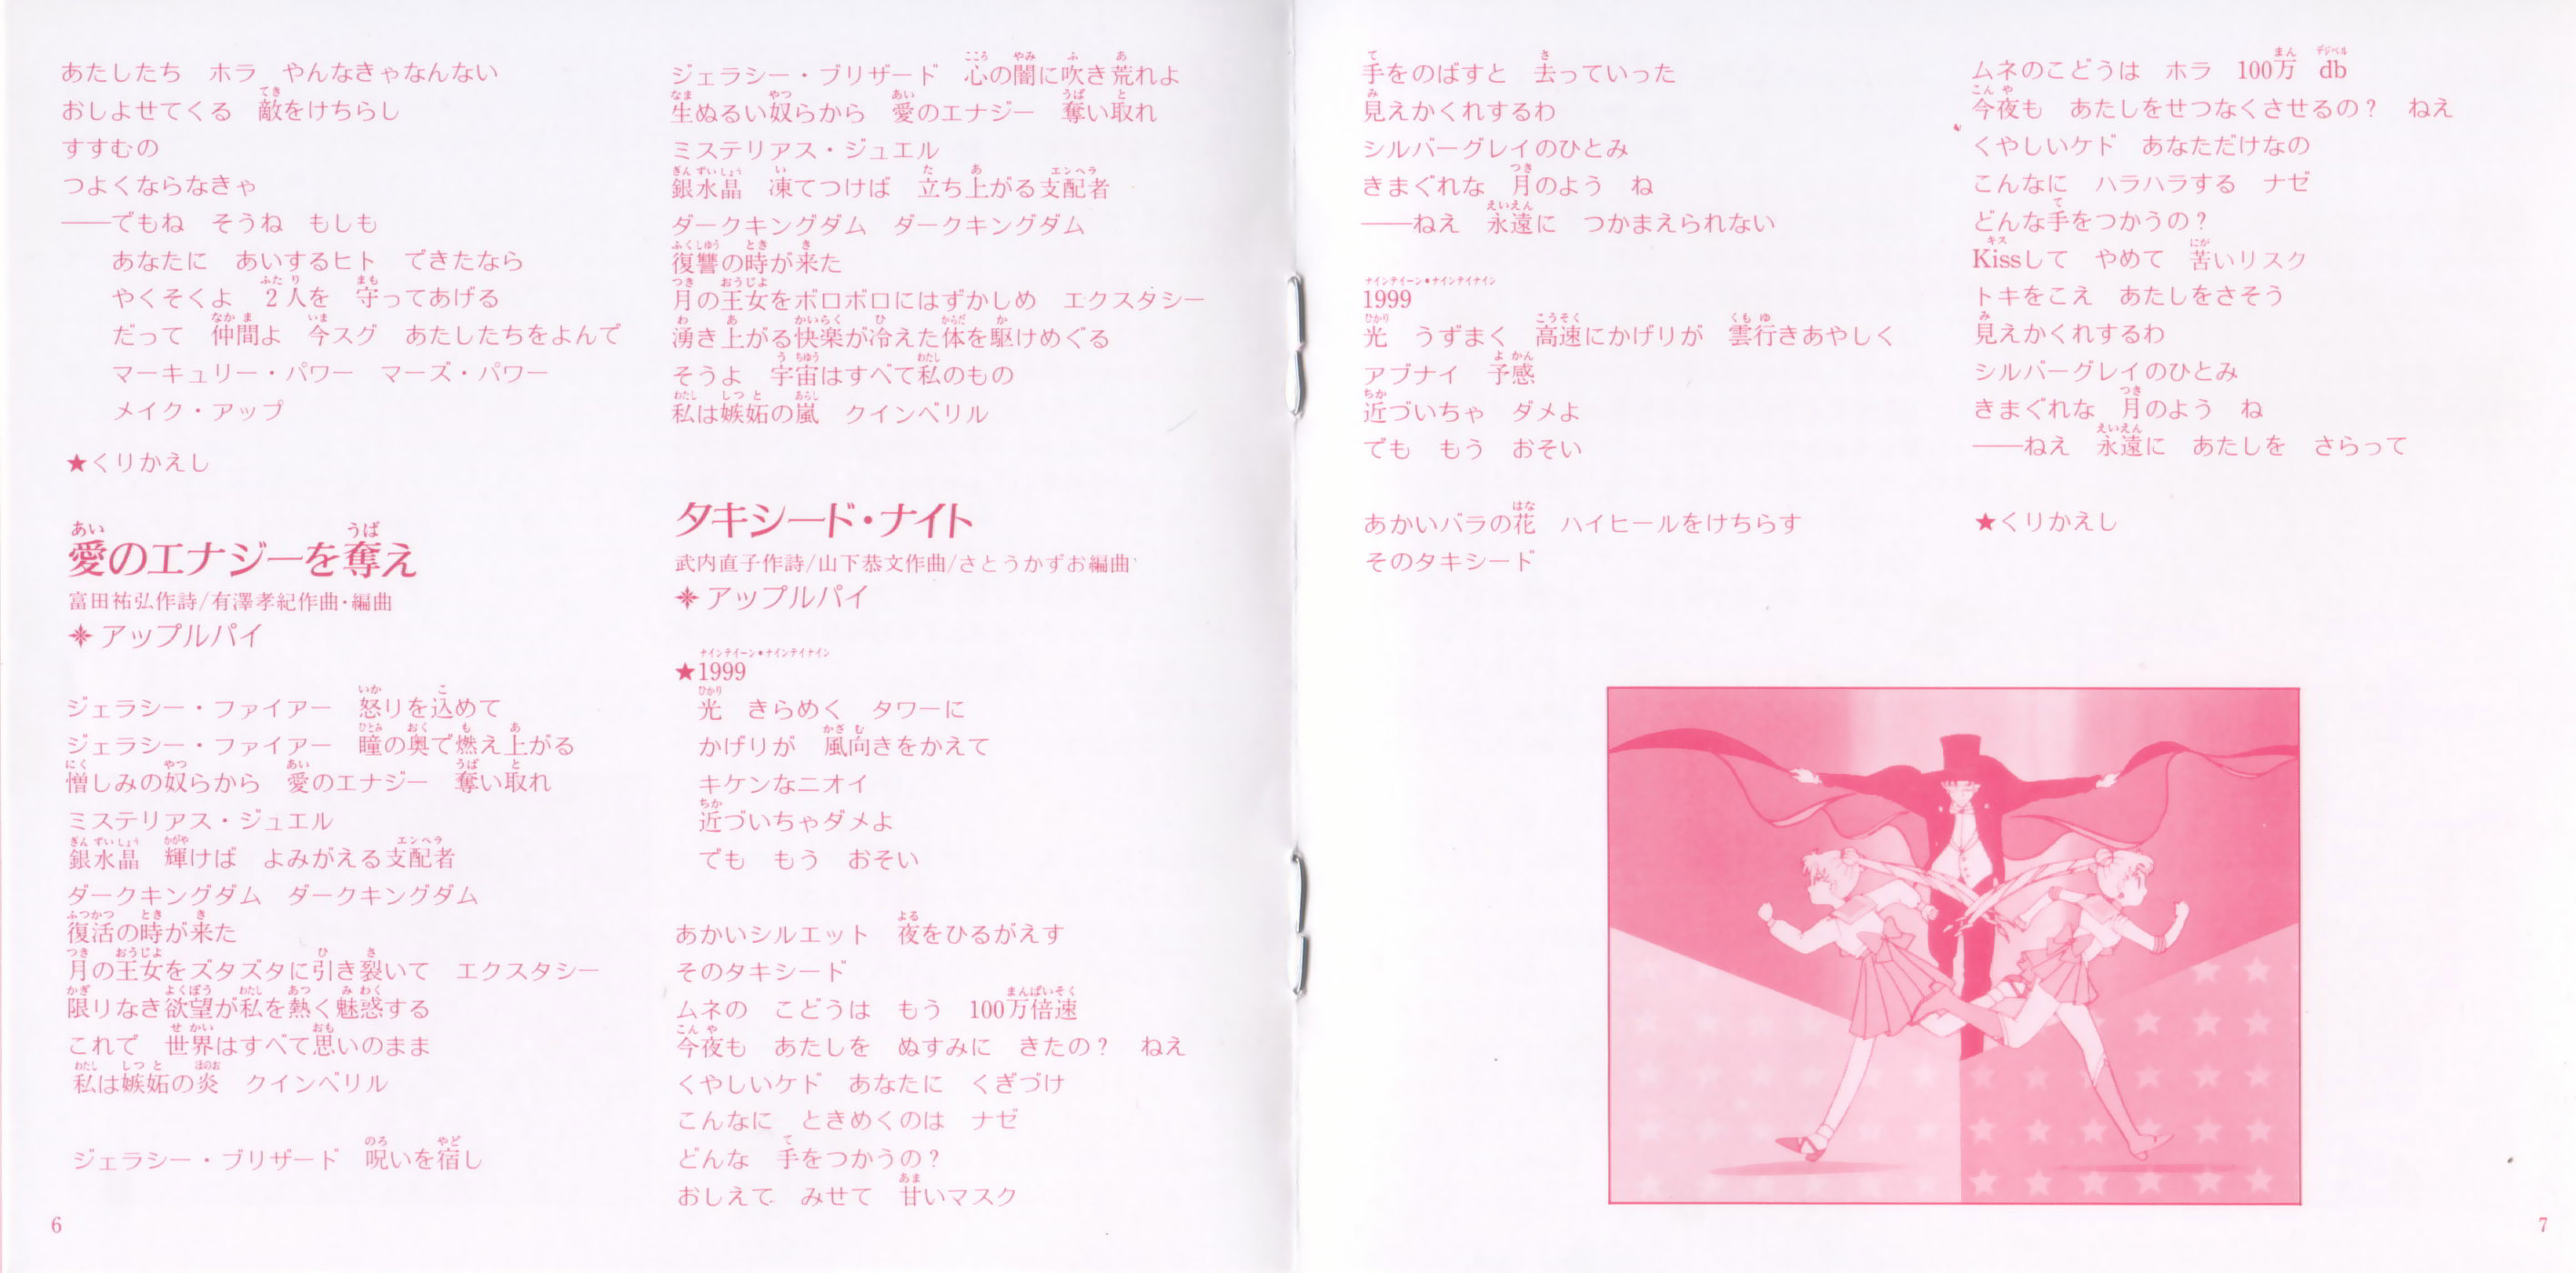 あたしたち　ホラ　やんなきゃなんない
おしよせてくる　敵をけちらし
すすむの
つよくならなきゃ
――でもね　そうね　もしも
あなたに　あいするヒト　できたなら
やくそくよ　2人を　守ってあげる
だって　仲間よ　今スグ　あたしたちをよんで
マーキュリー・パワー　マーズ・パワー
メイク・アップ
★くりかえし
愛のエナジーを奪え
富田祐弘作詩/有澤孝紀作曲・編曲
アップルパイ
ジェラシー・ファイアー　怒りを込めて
ジェラシー・ファイアー　瞳の奥で燃え上がる
憎しみの奴らから　愛のエナジー　奪い取れ
ミステリアス・ジュエル
銀水晶　輝けば　よみがえる支配者
ダークキングダム　ダークキングダム
復活の時が来た
月の王女をズタズタに引き裂いて　エクスタシー
限りなき欲望が私を熱く魅惑する
これで　世界はすべて思いのまま
私は嫉妬の炎　クインベリル
ジェラシー・ブリザード　呪いを宿し
6
ジェラシー・ブリザード　心の闇に吹き荒れよ
生ぬるい奴らから　愛のエナジー　奪い取れ
ミステリアス・ジュエル
銀水晶　凍てつけば　立ち上がる支配者
ダークキングダム　ダークキングダム
復讐の時が来た
月の王女をボロボロにはずかしめ　エクスタシー
湧き上がる快楽が冷えた体を駆けめぐる
そうよ　宇宙はすべて私のもの
私は嫉妬の嵐　クインベリル
タキシード・ナイト
武内直子作詩/山下恭文作曲/さとうかずお編曲
アップルパイ
★1999
光　きらめく　タワーに
かげりが　風向きをかえて
キケンなニオイ
近づいちゃダメよ
でも　もう　おそい
あかいシルエット　夜をひるがえす
そのタキシード
ムネの　こどうは　もう　100万倍速
今夜も　あたしを　ぬすみに　きたの？　ねえ
くやしいケド　あなたに　くぎづけ
こんなに　ときめくのは　ナゼ
どんな　手をつかうの？
おしえて　みせて　甘いマスク
手をのばすと　去っていった
見えかくれするわ
シルバーグレイのひとみ
きまぐれな　月のよう　ね
――ねえ　永遠に　つかまえられない
1999
光　うずまく　高速にかげりが　雲行きあやしく
アブナイ　予感
近づいちゃ　ダメよ
でも　もう　おそい
あかいバラの花　ハイヒールをけちらす
そのタキシード
ムネのこどうは　ホラ　100万　db
今夜も　あたしをせつなくさせるの？　ねえ
くやしいケド　あなただけなの
こんなに　ハラハラする　ナゼ
どんな手をつかうの？
Kissして　やめて　苦いリスク
トキをこえ　あたしをさそう
見えかくれするわ
シルバーグレイのひとみ
きまぐれな　月のよう　ね
――ねえ　永遠に　あたしを　さらって
★くりかえし
7